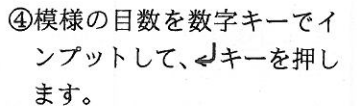 ④模様の目数を数字キーでイ
ンプットして、↲キーを押し
ます。